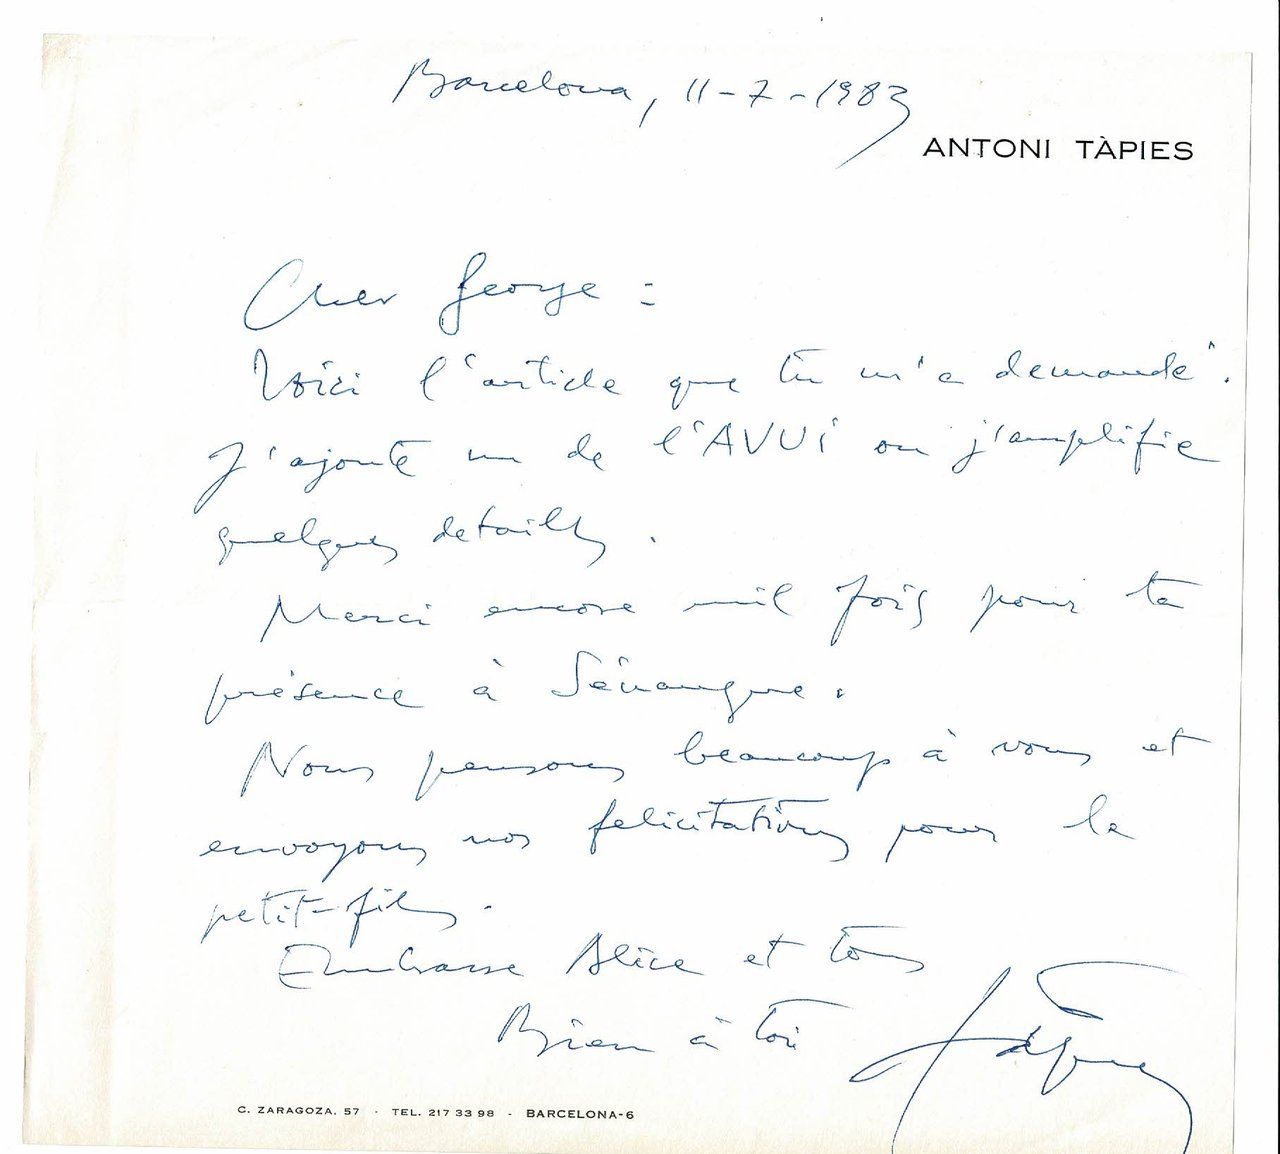 Barcelona, 11-7-1983
ANTONI TÀPIES
Cher George :
Voici l'article que tu m'a demandé.
J'ajoute un de l'AVUI ou j'amplifie
quelques detaills.
Merci encore mil fois pour ta
présence à Sénanque.
Nous pensons beaucoup à vous et
envoyons nos felicitations pour le
petit-fils.
Embrasse Alice et tous
Bien à toi
Tàpies
C. ZARAGOZA, 57 · TEL. 217 33 98 · BARCELONA-6